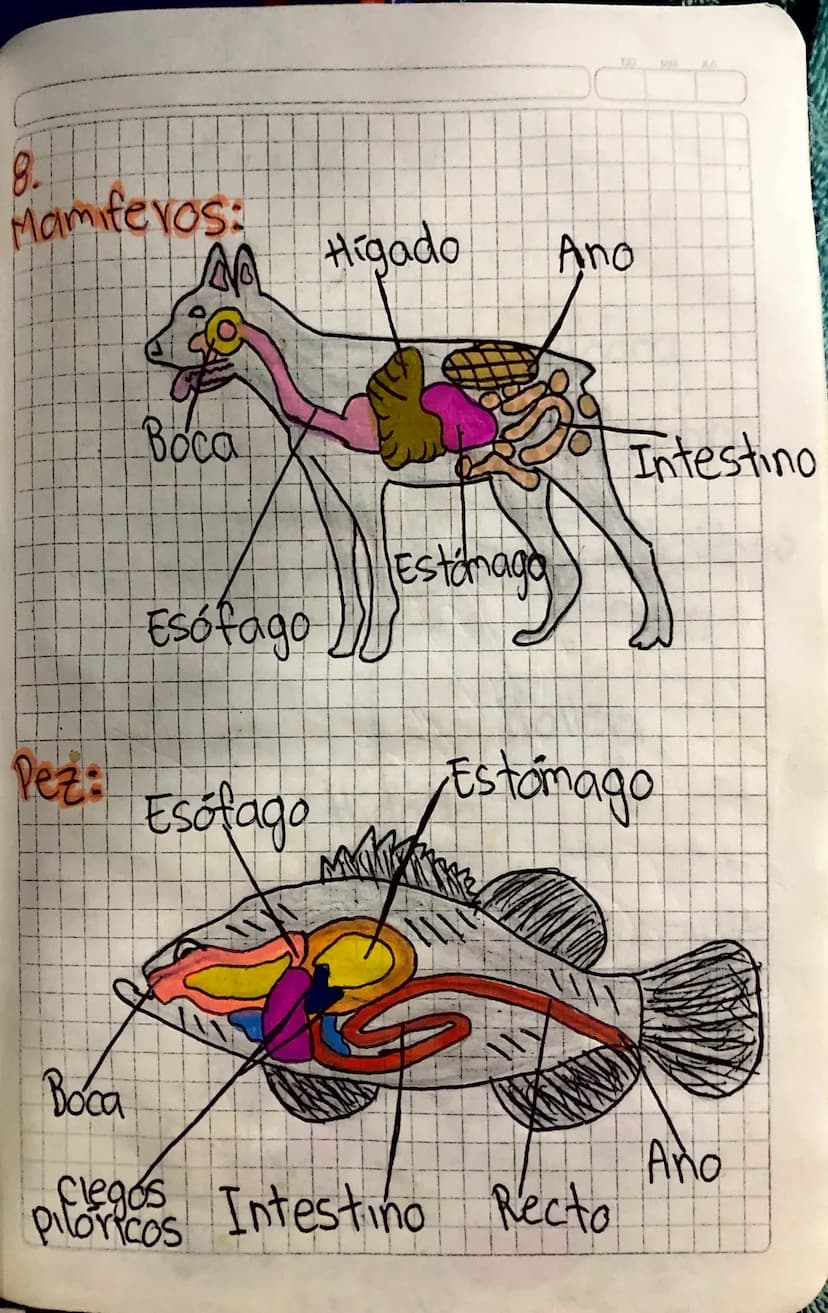 8.
Mamíferos:
Hígado
Ano
Boca
Intestino
Estómago
Esófago
Pez:
Esófago
Estómago
Boca
Ciegos
pilóricos
Intestino
Recto
Ano